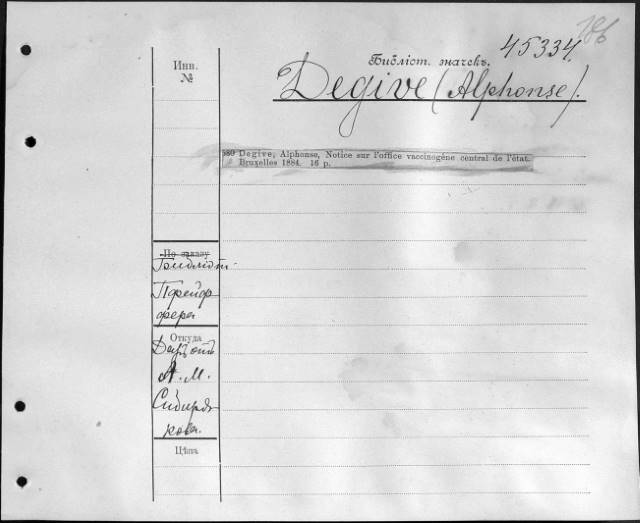 186
45334.
Инв.
№
Библіот. значекъ.
Degive (Alphonse).
Degive, Alphonse, Notice sur l'office vaccinogène central de l'état.
Bruxelles 1884. 16 p.
По заказу
Библіот.
Пфейф
фера
Откуда
Даръ отъ
А. М.
Сибиря
кова.
Цѣна